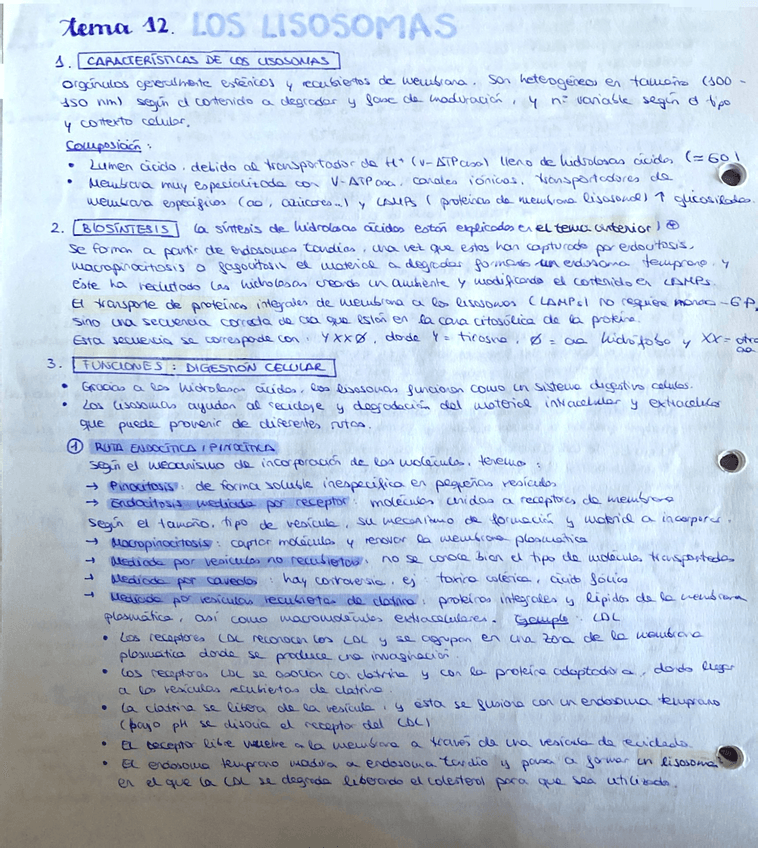 Tema 12. LOS LISOSOMAS
1. CARACTERÍSTICAS DE LOS LISOSOMAS
Orgánulos generalmente esféricos y recubiertos de membrana. Son heterogéneos en tamaño (100-
150 nm) según el contenido a degradar y fase de maduración, y nº variable según el tipo
y contexto celular.
Composición:
• Lumen ácido, debido al transportador de H⁺ (V-ATPasa) lleno de hidrolasas ácidas (≈ 60)
• Membrana muy especializada con V-ATPasa, canales iónicos, transportadores de
membrana específicos (aa, azúcares...) y LAMPs (proteínas de membrana lisosomal) ↑ glicosiladas.
2. BIOSÍNTESIS (la síntesis de hidrolasas ácidas están explicadas en el tema anterior) ⊕
Se forman a partir de endosomas tardíos, una vez que estos han capturado por endocitosis,
macropinocitosis o fagocitosis el material a degradar formando un endosoma temprano, y
éste ha reclutado las hidrolasas creando un ambiente y modificando el contenido en LAMPs.
El transporte de proteínas integrales de membrana a los lisosomas (LAMPs) no requiere manosa-6P,
sino una secuencia correcta de aa que están en la cara citosólica de la proteína.
Esta secuencia se corresponde con: YXXØ, donde Y = tirosina, Ø = aa hidrófobo y XX = otro
aa
3. FUNCIONES: DIGESTIÓN CELULAR
• Gracias a las hidrolasas ácidas, los lisosomas funcionan como un sistema digestivo celular.
• Los lisosomas ayudan al reciclaje y degradación del material intracelular y extracelular
que puede provenir de diferentes rutas.
① RUTA ENDOCÍTICA / PINOCÍTICA
Según el mecanismo de incorporación de las moléculas, tenemos:
→ Pinocitosis: de forma soluble inespecífica en pequeñas vesículas
→ Endocitosis mediada por receptor: moléculas unidas a receptores de membrana
Según el tamaño, tipo de vesícula, su mecanismo de formación y material a incorporar.
→ Macropinocitosis: captar moléculas y renovar la membrana plasmática
→ Mediada por vesículas no recubiertas, no se conoce bien el tipo de molécula transportadas
→ Mediada por caveolas: hay controversia, ej: toxina colérica, ácido fólico
→ Mediada por vesículas recubiertas de clatrina: proteínas integrales y lípidos de la membrana
plasmática, así como macromoléculas extracelulares. Ejemplo: LDL
• Los receptores LDL reconocen las LDL y se agrupan en una zona de la membrana
plasmática donde se produce una invaginación.
• Los receptores LDL se asocian con clatrina y con la proteína adaptadora, dando lugar
a las vesículas recubiertas de clatrina.
• La clatrina se libera de la vesícula, y ésta se fusiona con un endosoma temprano
(bajo pH se disocia el receptor del LDL)
• El receptor libre vuelve a la membrana a través de una vesícula de reciclado.
• El endosoma temprano madura a endosoma tardío y pasa a formar un lisosoma
en el que la LDL se degrada liberando el colesterol para que sea utilizado.